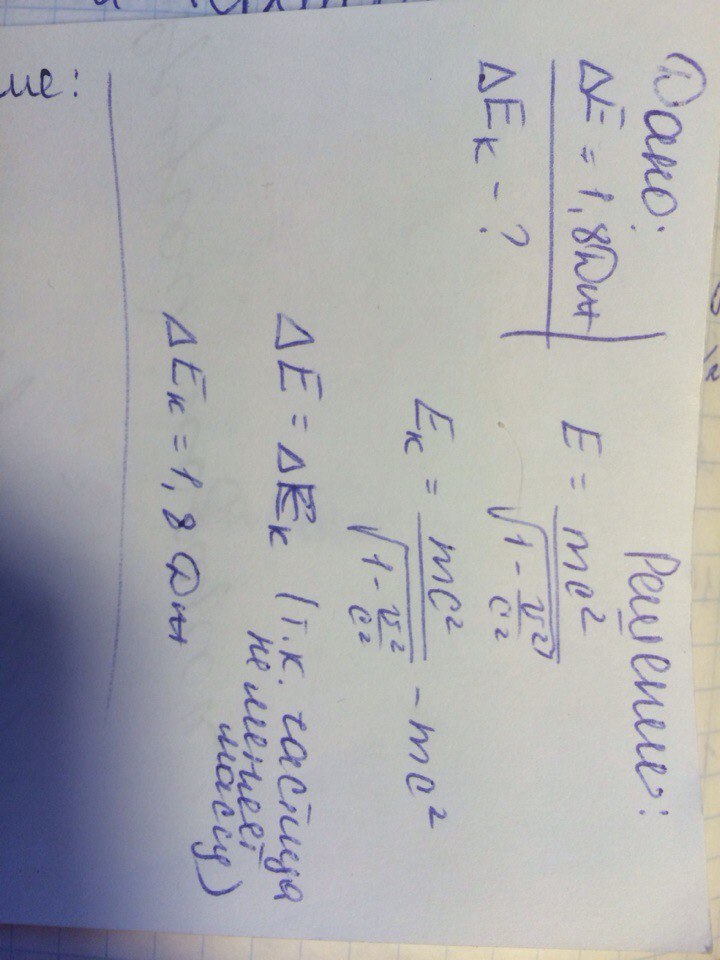 Дано:
ΔE = 1,8 Дж
ΔEк - ?
Решение:
E = mc² / √(1 - v²/c²)
Eк = mc² / √(1 - v²/c²) - mc²
ΔE = ΔEк (т.к. частица
не меняет
массу)
ΔEк = 1,8 Дж
ие: